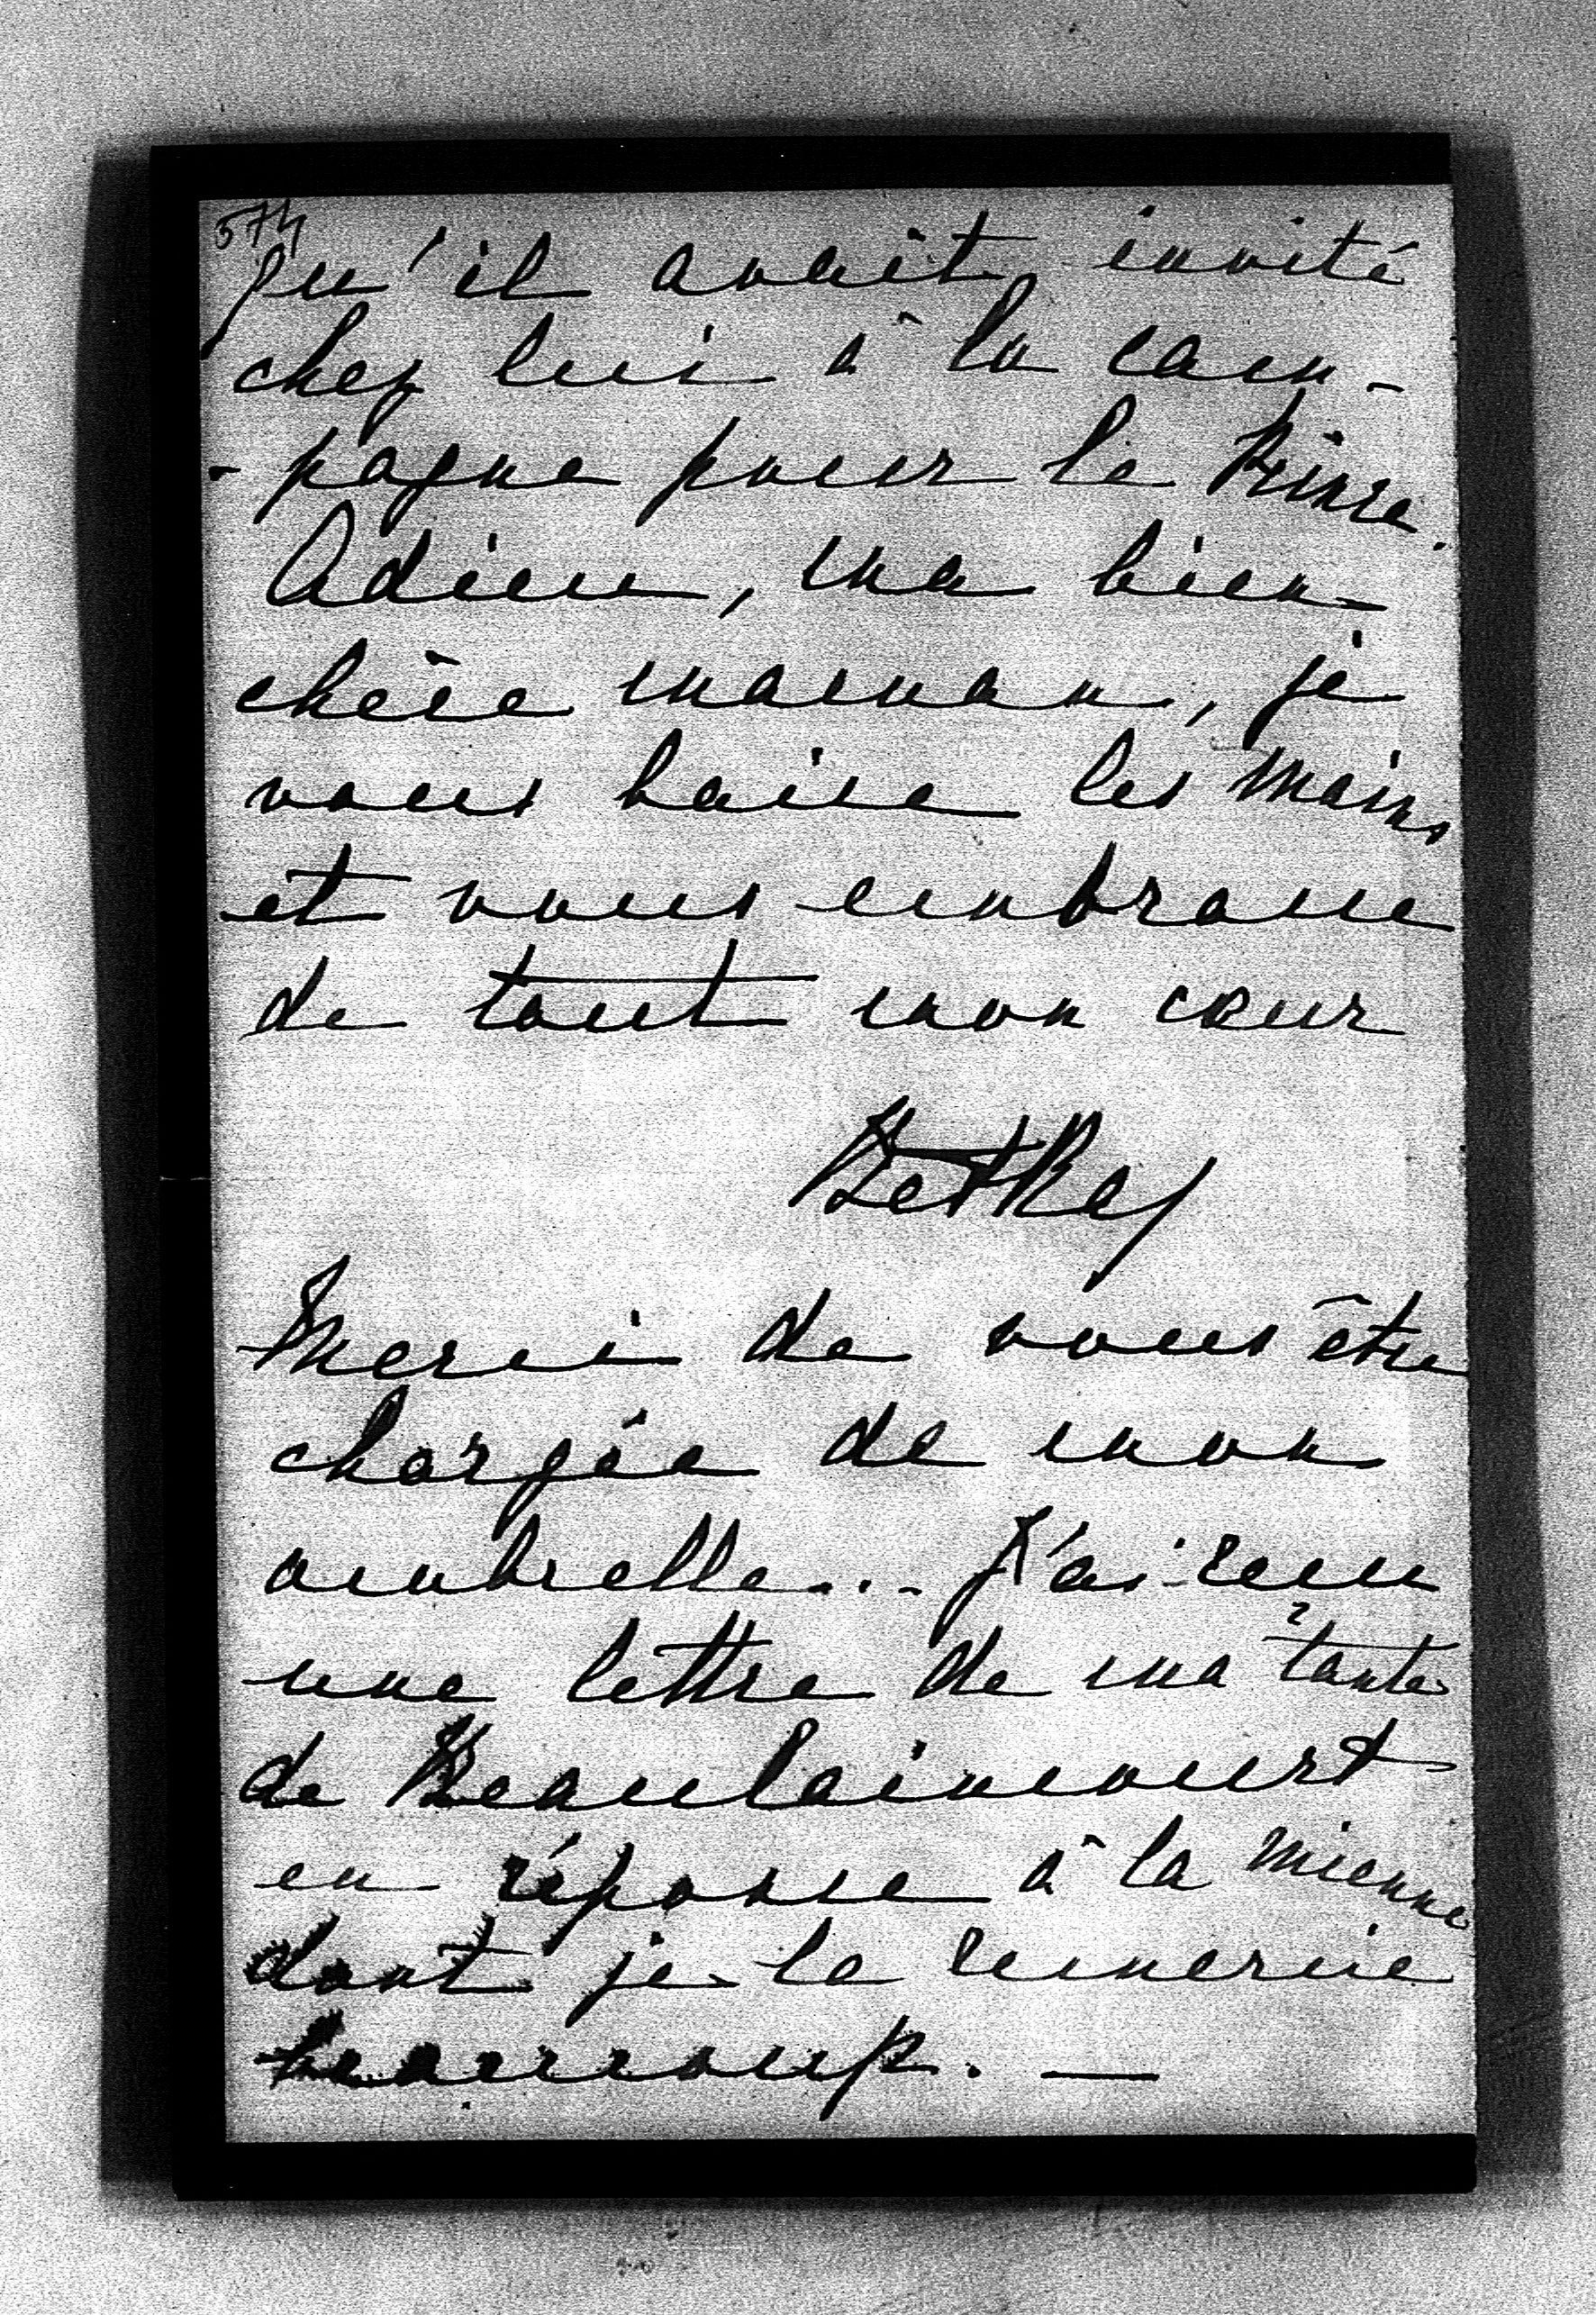 574
qu'il avait invité
chez lui à la cam-
-pagne pour le Prince.
Adieu, ma bien-
chère maman, je
vous baise les mains
et vous embrasse
de tout mon cœur
Merci de vous être
chargée de mon
ombrelle... J'ai reçu
une lettre de ma tante
de Beaulaincourt
en réponse à la mienne
dont je la remercie
beaucoup. —